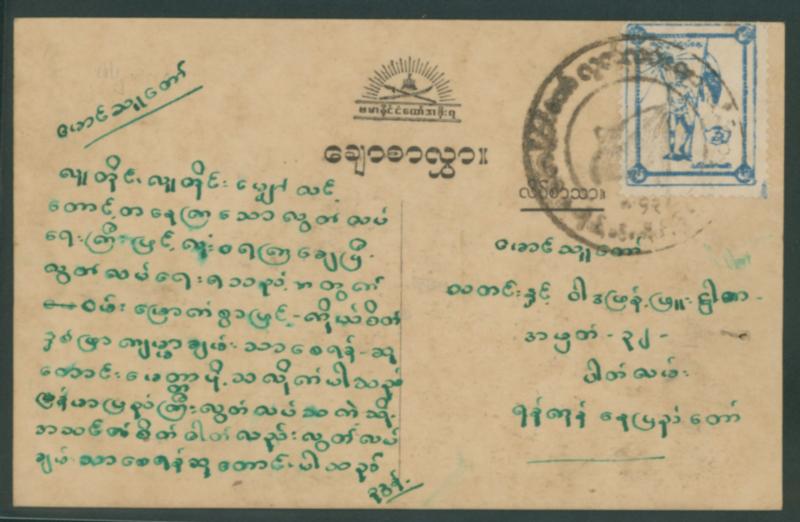 ဗမာနိုင်ငံတော်အစိုးရ
ချောစာလွှာ။
လိပ်စာသာ။
မောင်သူတော်
လူတိုင်း လူတိုင်း မျှော်လင့်
တောင့်တနေကြသော လွတ်လပ်
ရေးကြီးဖြင့် လုံးဝရကြချေပြီ။
လွတ်လပ်ရေးရသည့်အတွက်
ဝမ်းမြောက်စွာဖြင့် - ကိုယ်စိတ်
နှစ်ဖြာကျန္မာချမ်းသာစေရန် - ဆု
တောင်းမေတ္တာပို့သလိုက်ပါသည်
မြန်မာပြည်ကြီးလွတ်လပ်သကဲ့သို့
အသင်၏စိတ်ဓါတ်လည်းလွတ်လပ်
ချမ်းသာစေရန်ဆုတောင်းပါသည်
မောင်သူတော်
သတင်းနှင့် ဝါဒဖြန့်ဖြူးဌါန -
အမှတ် - ၃၂ -
ပါတ်လမ်း
ရန်ကုန် နေပြည်တော်